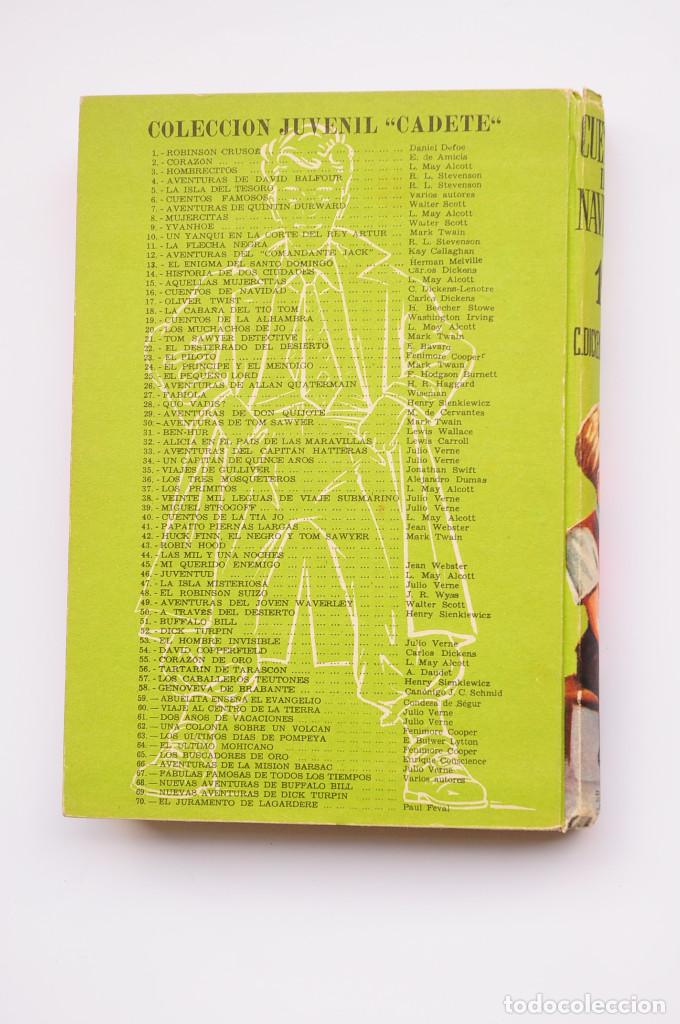 COLECCION JUVENIL "CADETE"
1. - ROBINSON CRUSOE ... Daniel Defoe
2. - CORAZON ... E. de Amicis
3. - HOMBRECITOS ... L. May Alcott
4. - AVENTURAS DE DAVID BALFOUR ... R. L. Stevenson
5. - LA ISLA DEL TESORO ... R. L. Stevenson
6. - CUENTOS FAMOSOS ... varios autores
7. - AVENTURAS DE QUINTIN DURWARD ... Walter Scott
8. - MUJERCITAS ... L. May Alcott
9. - YVANHOE ... Walter Scott
10. - UN YANQUI EN LA CORTE DEL REY ARTUR ... Mark Twain
11. - LA FLECHA NEGRA ... R. L. Stevenson
12. - AVENTURAS DEL "COMANDANTE JACK" ... Kay Callaghan
13. - EL ENIGMA DEL SANTO DOMINGO ... Herman Melville
14. - HISTORIA DE DOS CIUDADES ... Carlos Dickens
15. - AQUELLAS MUJERCITAS ... L. May Alcott
16. - CUENTOS DE NAVIDAD ... C. Dickens-Lenotre
17. - OLIVER TWIST ... Carlos Dickens
18. - LA CABAÑA DEL TIO TOM ... H. Becher Stowe
19. - CUENTOS DE LA ALHAMBRA ... Washington Irving
20. - LOS MUCHACHOS DE JO ... L. May Alcott
21. - TOM SAWYER DETECTIVE ... Mark Twain
22. - EL DESTERRADO DEL DESIERTO ... E. Bavaro
23. - EL PILOTO ... Fenimore Cooper
24. - EL PRINCIPE Y EL MENDIGO ... Mark Twain
25. - EL PEQUEÑO LORD ... F. Hodgson Burnett
26. - AVENTURAS DE ALLAN QUATERMAIN ... H. R. Haggard
27. - FABIOLA ... Wiseman
28. - QUO VADIS? ... Henry Sienkiewicz
29. - AVENTURAS DE DON QUIJOTE ... M. de Cervantes
30. - AVENTURAS DE TOM SAWYER ... Mark Twain
31. - BEN-HUR ... Lewis Wallace
32. - ALICIA EN EL PAIS DE LAS MARAVILLAS ... Lewis Carroll
33. - AVENTURAS DEL CAPITAN HATTERAS ... Julio Verne
34. - UN CAPITAN DE QUINCE AÑOS ... Julio Verne
35. - VIAJES DE GULLIVER ... Jonathan Swift
36. - LOS TRES MOSQUETEROS ... Alejandro Dumas
37. - LOS PRIMITOS ... L. May Alcott
38. - VEINTE MIL LEGUAS DE VIAJE SUBMARINO Julio Verne
39. - MIGUEL STROGOFF ... Julio Verne
40. - CUENTOS DE LA TIA JO ... L. May Alcott
41. - PAPAITO PIERNAS LARGAS ... Jean Webster
42. - HUCK FINN, EL NEGRO Y TOM SAWYER ... Mark Twain
43. - ROBIN HOOD ...
44. - LAS MIL Y UNA NOCHES ...
45. - MI QUERIDO ENEMIGO ... Jean Webster
46. - JUVENTUD ... L. May Alcott
47. - LA ISLA MISTERIOSA ... Julio Verne
48. - EL ROBINSON SUIZO ... J. R. Wyss
49. - AVENTURAS DEL JOVEN WAVERLEY ... Walter Scott
50. - A TRAVES DEL DESIERTO ... Henry Sienkiewicz
51. - BUFFALO BILL ...
52. - DICK TURPIN ...
53. - EL HOMBRE INVISIBLE ... Julio Verne
54. - DAVID COPPERFIELD ... Carlos Dickens
55. - CORAZON DE ORO ... L. May Alcott
56. - TARTARIN DE TARASCON ... A. Daudet
57. - LOS CABALLEROS TEUTONES ... Henry Sienkiewicz
58. - GENOVEVA DE BRABANTE ... Canónigo J. C. Schmid
59. — ABUELITA ENSEÑA EL EVANGELIO ... Condesa de Ségur
60. — VIAJE AL CENTRO DE LA TIERRA ... Julio Verne
61. — DOS AÑOS DE VACACIONES ... Julio Verne
62. — UNA COLONIA SOBRE UN VOLCAN ... Fenimore Cooper
63. — LOS ULTIMOS DIAS DE POMPEYA ... E. Bulwer Lytton
64. — EL ULTIMO MOHICANO ... Fenimore Cooper
65. — LOS BUSCADORES DE ORO ... Enrique Conscience
66. — AVENTURAS DE LA MISION BARSAC ... Julio Verne
67. — FABULAS FAMOSAS DE TODOS LOS TIEMPOS ... Varios autores
68. — NUEVAS AVENTURAS DE BUFFALO BILL ...
69. — NUEVAS AVENTURAS DE DICK TURPIN
70. — EL JURAMENTO DE LAGARDERE ... Paul Feval
CUE
NAV
1
C. DICKE
todocoleccion